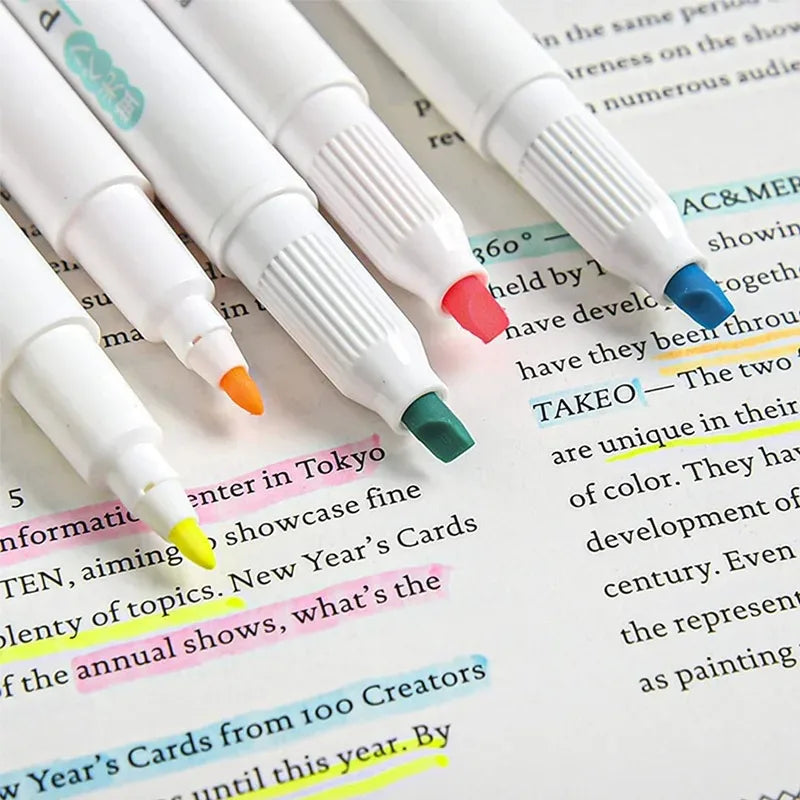 蛍光ペン P
in the same period
reness on the show
numerous audie
rev
su
ma in t
5
nformatio enter in Tokyo
TEN, aiming o showcase fine
plenty of topics. New Year's Cards
of the annual shows, what's the
w Year's Cards from 100 Creators
s until this year. By
360° — AC&MER
showin
held by T
have develo togethe
have they been throu
TAKEO — The two f
are unique in their
of color. They hav
development of
century. Even
the represent
as painting